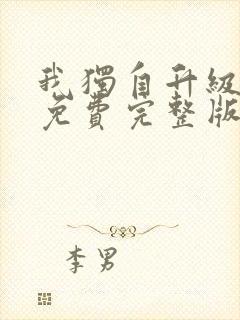 我獨自升級
免費完整版
李男